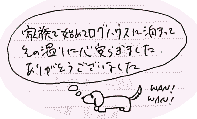 家族で始めてログハウスに泊まって
その造りに心安らぎました
ありがとうございました
WAN!
WAN!